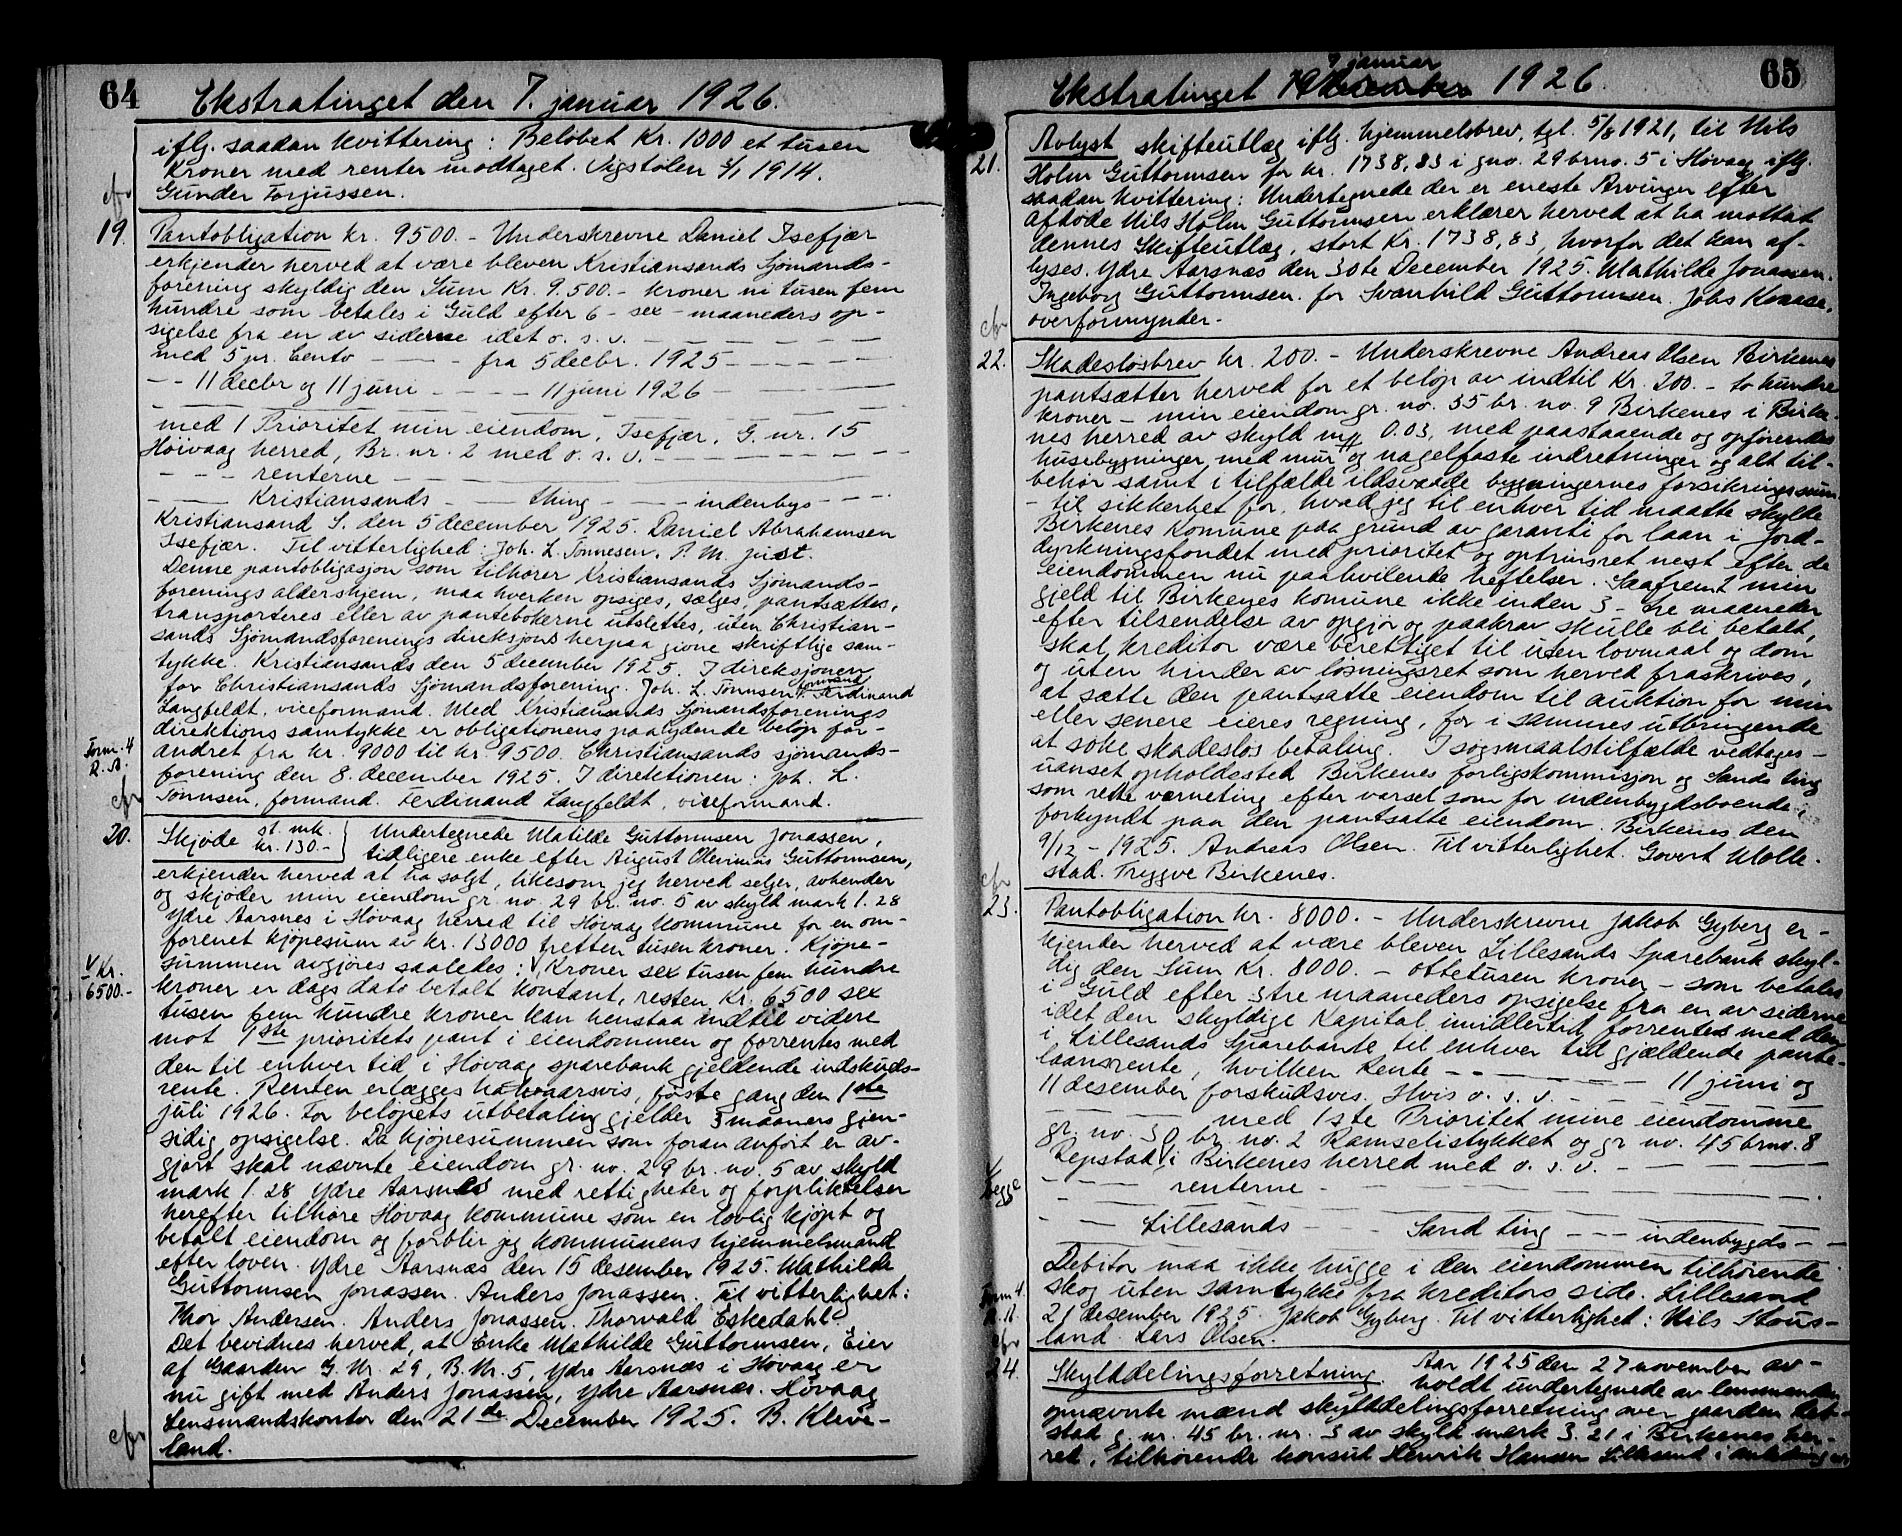 64
Ekstratinget den 7. januar 1926.
iflg. saadan kvittering: Beløbet Kr. 1000 et tusen
Kroner med renter modtaget. Vigstølen 2/1 1914.
Gunder Torjussen.
cfr
19. Pantobligation kr. 9500.- Underskrevne Daniel Isefjær
erkjender herved at være bleven Kristiansands Sjømands-
forening skyldig den Sum Kr. 9.500.- kroner ni tusen fem
hundre som betales i Guld efter 6 - sex - maaneders op-
sigelse fra en av siderne idet o. s. v. — — — —
med 5 pr. Cento — — — fra 5 decbr. 1925 — — — —
— — 11 decbr og 11 juni — — — — 11 juni 1926 — — —
med 1 Prioritet min eiendom, Isefjær, G. nr. 15
Høivaag herred, Br. nr. 2 med o. s. v. — — — — —
— — renterne — — — — — —
— — Kristiansands — — thing — — indenbys — —
Kristiansand S. den 5 december 1925. Daniel Abrahamsen
Isefjær. Til vitterlighed: Joh. L. Tønnesen. P. M. just.
Denne pantobligasjon som tilhører Kristiansands Sjømands-
forenings aldershjem, maa hverken opsiges, sælges, pantsættes,
transporteres eller av pantebøkerne utslettes, uten Christian-
sands Sjømandsforenings direksjons herpaa givne skriftlige sam-
tykke. Kristiansands den 5 december 1925. I direksjonen
for Christiansands Sjømandsforening. Joh. L. Tønnsen formand. Ferdinand
Langfeldt, viceformand. Med Kristiansands Sjømandsforenings
direktions samtykke er obligationens paalydende beløp for-
andret fra kr. 9000 til kr. 9500. Christiansands sjømands-
forening den 8. december 1925. I direktionen: Joh. L.
Tønnsen, formand. Ferdinand Langfeldt, viceformand.
Form. 4
R. A.
cfr
20. Skjøde st. mk. kr. 130.- Undertegnede Matilde Guttormsen Jonassen,
tidligere enke efter August Olevinius Guttormsen,
erkjender herved at ha solgt, likesom jeg herved selger, avhender
og skjøder min eiendom gr. no. 29 br. no. 5 av skyld mark 1.28
Ydre Aarsnes i Høvaag herred til Høvaag kommune for en om-
forenet kjøpesum av kr. 13000 tretten tusen kroner. Kjøpe-
summen avgjøres saaledes: V Kroner sex tusen fem hundre
V Kr.
6500.-
kroner er dags dato betalt kontant, resten Kr. 6500 sex
tusen fem hundre kroner kan henstaa indtil videre
mot 1ste prioritets pant i eiendommen og forrentes med
den til enhver tid i Høvaag sparebank gjeldende indskuds-
rente. Renten erlægges halvaarsvis, første gang den 1ste
juli 1926. For beløpets utbetaling gjelder 3 maaners gjen-
sidig opsigelse. Da kjøpesummen som foran anført er av-
gjort skal nævnte eiendom gr. no. 29 br. no. 5 av skyld
mark 1.28 Ydre Aarsnes med rettigheter og forpliktelser
herefter tilhøre Høvaag kommune som en lovlig kjøpt og
betalt eiendom og forblir jeg kommunens hjemmelsmand
efter loven. Ydre Aarsnæs den 15 desember 1925. Mathilde
Guttormsen Jonassen. Anders Jonassen. Til vitterlighet:
Thor Andersen. Anders Jonassen. Thorvald Eskedahl.
Det bevidnes herved, at Enke Mathilde Guttormsen, Eier
af Gaarden G. Nr. 29, B. Nr. 5, Ydre Aarsnæs i Høvaag er
nu gift med Anders Jonassen, Ydre Aarsnæs. Høvaag
Lensmandskontor den 21de December 1925. B. Kleve-
land.
cfr
65
Ekstratinget 7 januar 1926.
21. Avlyst skifteutlæg iflg. hjemmelsbrev, tgl. 5/8 1921, til Nils
Holm Guttormsen for kr. 1738,83 i gno. 29 brno. 5 i Høvaag iflg.
saadan kvittering: Undertegnede der er eneste Arvinger efter
afdøde Nils Holm Guttormsen erklærer herved at ha mottat
dennes Skifteutlæg, stort Kr. 1738,83, hvorfor det kan af-
lyses. Ydre Aarsnæs den 30te December 1925. Mathilde Jonassen.
Ingeborg Guttormsen. for Svanhild Guttormsen. Jobs Knaase,
overformynder.
cfr
22. Skadesløsbrev kr. 200.- Underskrevne Andreas Olsen Birkenes
pantsætter herved for et beløp av indtil Kr. 200.- to hundre
kroner - min eiendom gr. no. 35 br. no. 9 Birkenes i Birke-
nes herred av skyld mk 0.03, med paastaaende og opførendes
husebygninger med mur og nagelfaste indretninger og alt til-
behør samt i tilfælde ildsvaade bygningernes forsikringssum
- til sikkerhet for, hvad jeg til enhver tid maatte skylde
Birkenes Komune paa grund av garanti for laan i Jord-
dyrkningsfondet med prioritet og optrinsret nest efter de
eiendommen nu paahvilende heftelser. Saafremt min
gjeld til Birkenes komune ikke inden 3 - tre maaneder
efter tilsendelse av opgjør og paakrav skulle bli betalt,
skal kreditor være berettiget til uten lovmaal og dom
og uten hinder av løsningsret som herved fraskrives,
at sætte den pantsatte eiendom til auktion for min
eller senere eieres regning, for i sammes utbringende
at søke skadesløs betaling. I søgsmaalstilfælde vedtages -
uanset opholdested Birkenes forligskommisjon og Sands ting
som rette verneting efter varsel som for indenbygdsboende
forkyndt paa den pantsatte eiendom. Birkenes den
9/12 - 1925. Andreas Olsen. Til vitterlighet. Govert Molle-
stad. Trygve Birkenes.
cfr
23. Pantobligation kr. 8000.- Underskrevne Jakob Gyberg er-
kjender herved at være bleven Lillesands Sparebank skyl-
dig den Sum Kr. 8000.- ottetusen kroner - som betales
i Guld efter 3 tre maaneders opsigelse fra en av siderne
idet den skyldige Kapital imidlertid forrentes med den
i Lillesands Sparebank til enhver tid gjældende pante-
laansrente, hvilken Rente — — — — — 11 juni og
11 desember forskudsvis. Hvis o. s. v. — —
— — — — med 1ste Prioritet mine eiendomme
gr. no. 30 br. no. 2 Ramselistykket og gr no. 45 brno. 8
Repstad V i Birkenes herred med o. s. v. — — — —
V begge
— — renterne — — — — — —
— — Lillesands — — Sand ting — — indenbygds — —
Debitor maa ikke hugge i den eiendommen tilhørende
skog uten samtykke fra kreditors side. Lillesand
21 desember 1925. Jakob Gyberg. Til vitterlighet: Nils Stous-
land. Lars Olsen.
Form 4.
R. A.
cfr
24. Skylddelingsforretning. Aar 1925 den 27 november av-
holdt undertegnede av lensmanden
opnævnte mænd skylddelingsforretning over gaarden Rep-
stad g. nr. 45 br. nr. 3 av skyld mark 3.21 i Birkenes her-
red, tilhørende konsul Henrik Hansen Lillesand i anledning